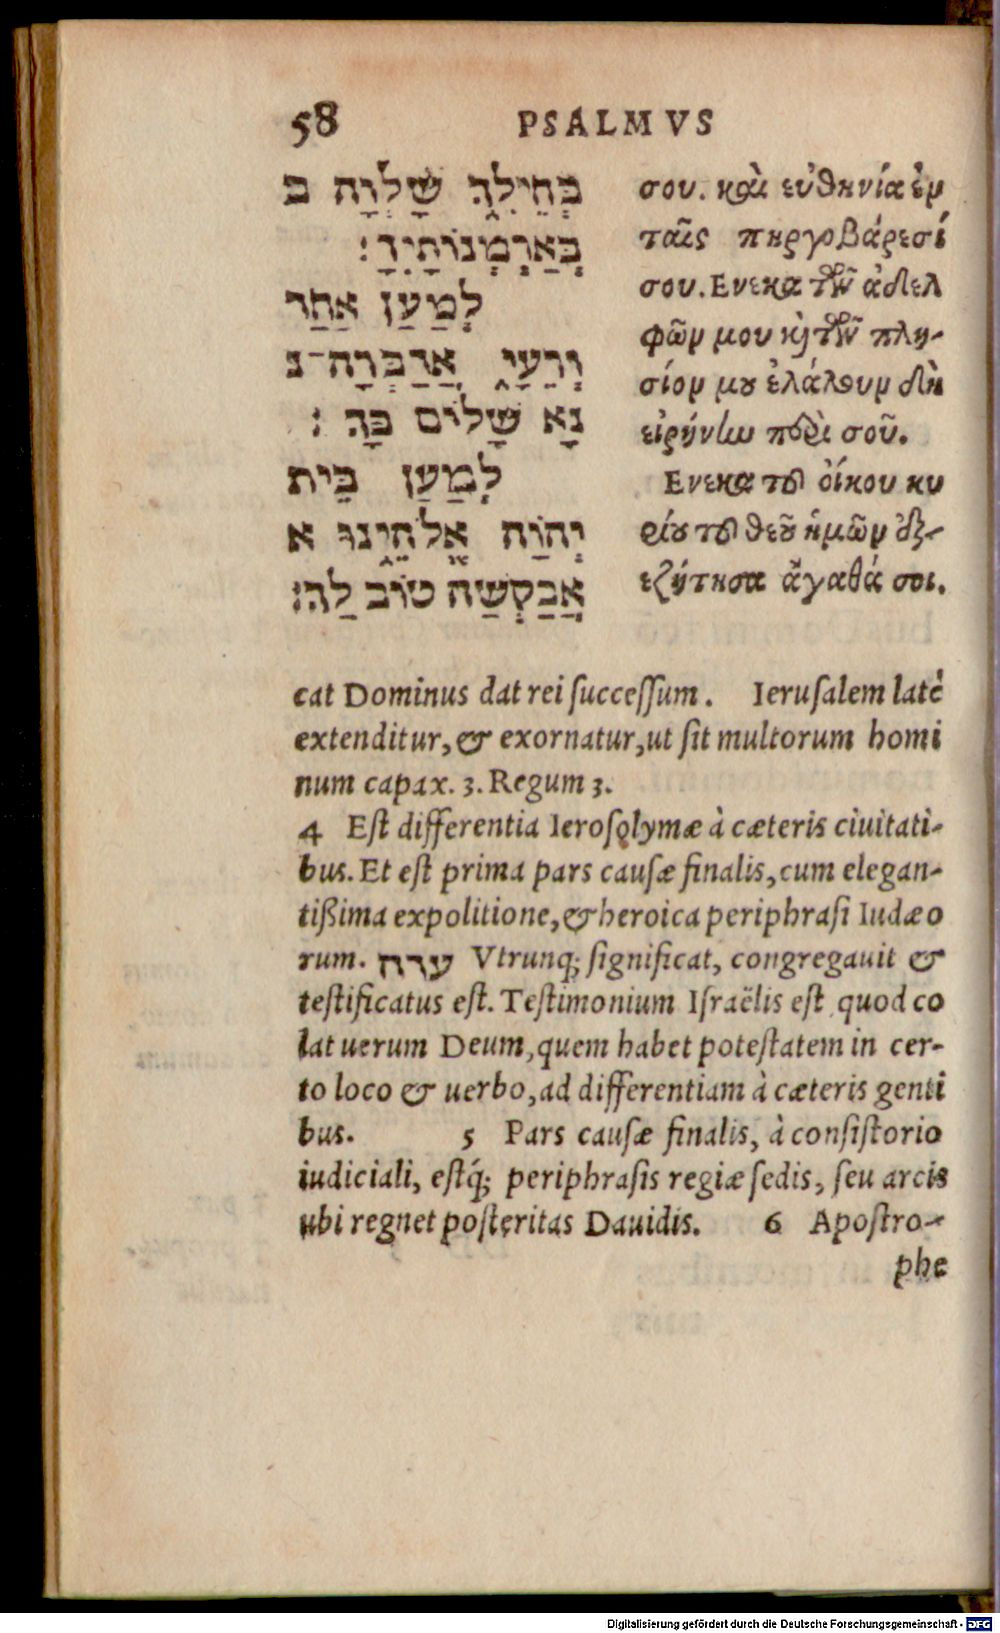 58 PSALMVS
בְּחֵילֵךְ שָׁלְוָה ב
בְּאַרְמְנוֹתָיִךְ׃
לְמַעַן אַחַר
וְרֵעָי אֲדַבְּרָה־נ
נָּא שָׁלוֹם בָּךְ׃
לְמַעַן בֵּית
יְהוָֹה אֱלֹהֵינוּ א
אֲבַקְשָׁה טוֹב לָךְ׃
σου. καὶ εὐθηνία ἐν
ταῖς πυργοβάρεσί
σου. Ενεκα τῶν ἀδελ
φῶν μου κὶ τῶν πλη-
σίον μου ἐλάλουν δὴ
εἰρήνην περὶ σοῦ.
Ενεκα τοῦ οἴκου κυ
ρίου τοῦ θεοῦ ἡμῶν ἐξ-
εζήτησα ἄγαθά σοι.
cat Dominus dat rei ſucceſſum. Ieruſalem latè
extenditur, & exornatur, ut ſit multorum homi
num capax. 3. Regum 3.
4 Eſt differentia Ieroſolymæ à cæteris ciuitati-
bus. Et eſt prima pars cauſæ finalis, cum elegan-
tißima expolitione, & heroica periphraſi Iudæo
rum. ערה Vtrunq; ſignificat, congregauit &
teſtificatus eſt. Teſtimonium Iſraëlis eſt quod co
lat uerum Deum, quem habet poteſtatem in cer-
to loco & uerbo, ad differentiam à cæteris genti
bus. 5 Pars cauſæ finalis, à conſiſtorio
iudiciali, eſtq́; periphraſis regiæ ſedis, ſeu arcis
ubi regnet poſteritas Dauidis. 6 Apoſtro-
phe
Digitalisierung gefördert durch die Deutsche Forschungsgemeinschaft - DFG